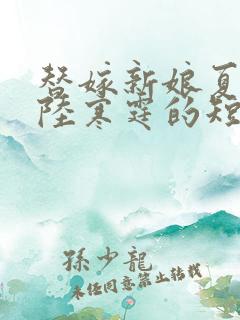 替嫁新娘夏
陸寒霆的短
孫少龍
未经同意禁止转载